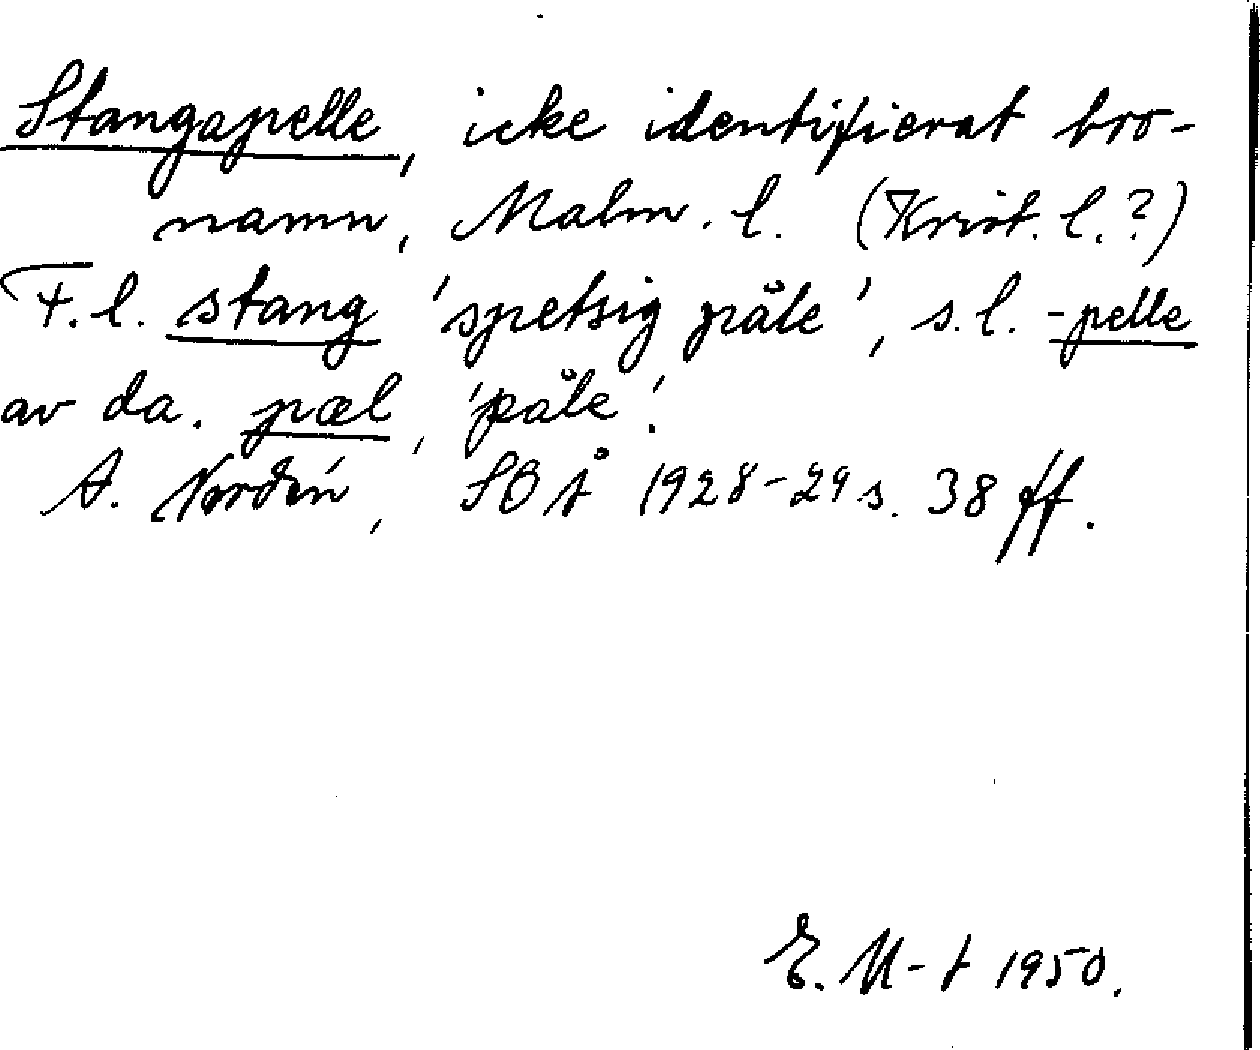 Stangapelle, icke identifierat bro-
namn, Malm. l. (Krist. l.?)
F.l. stang 'spetsig påle', s.l. -pelle
av da. pæl, 'påle'.
A. Nordén, SBÅ 1928-29 s. 38 ff.
E. M-t 1950.